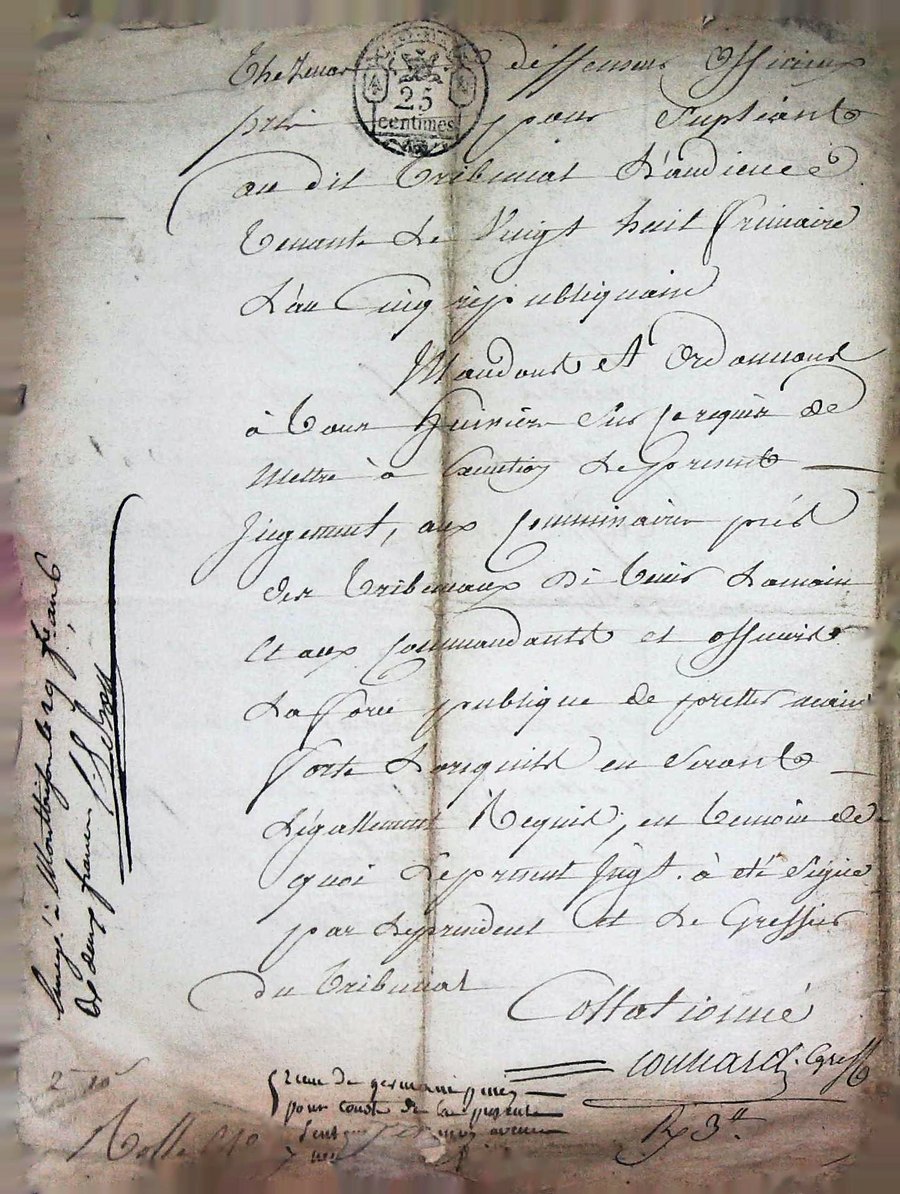 Thezenas deffenseur officieux
pris pour supleant
au dit tribunal l'audience
tenante le Vingt huit frimaire
l'an Cinq republiquain
Mandons et Ordonnons
à tous huissiers sur ce requis de
mettre à Execution le present
jugement, aux Commissaires prés
des tribunaux di tenir Lamain
et aux Commandants et officiers
La force publique de pretter main
forte Lorsquils en seront
légallement Requis, en temoin de
quoi Lepresent jugt. à eté signé
par Lepresident et Le Greffier
du tribunal
Collationné
Greff
25
centimes
de deux francs
Reçu de germain
pour cout de la presente
Rolle